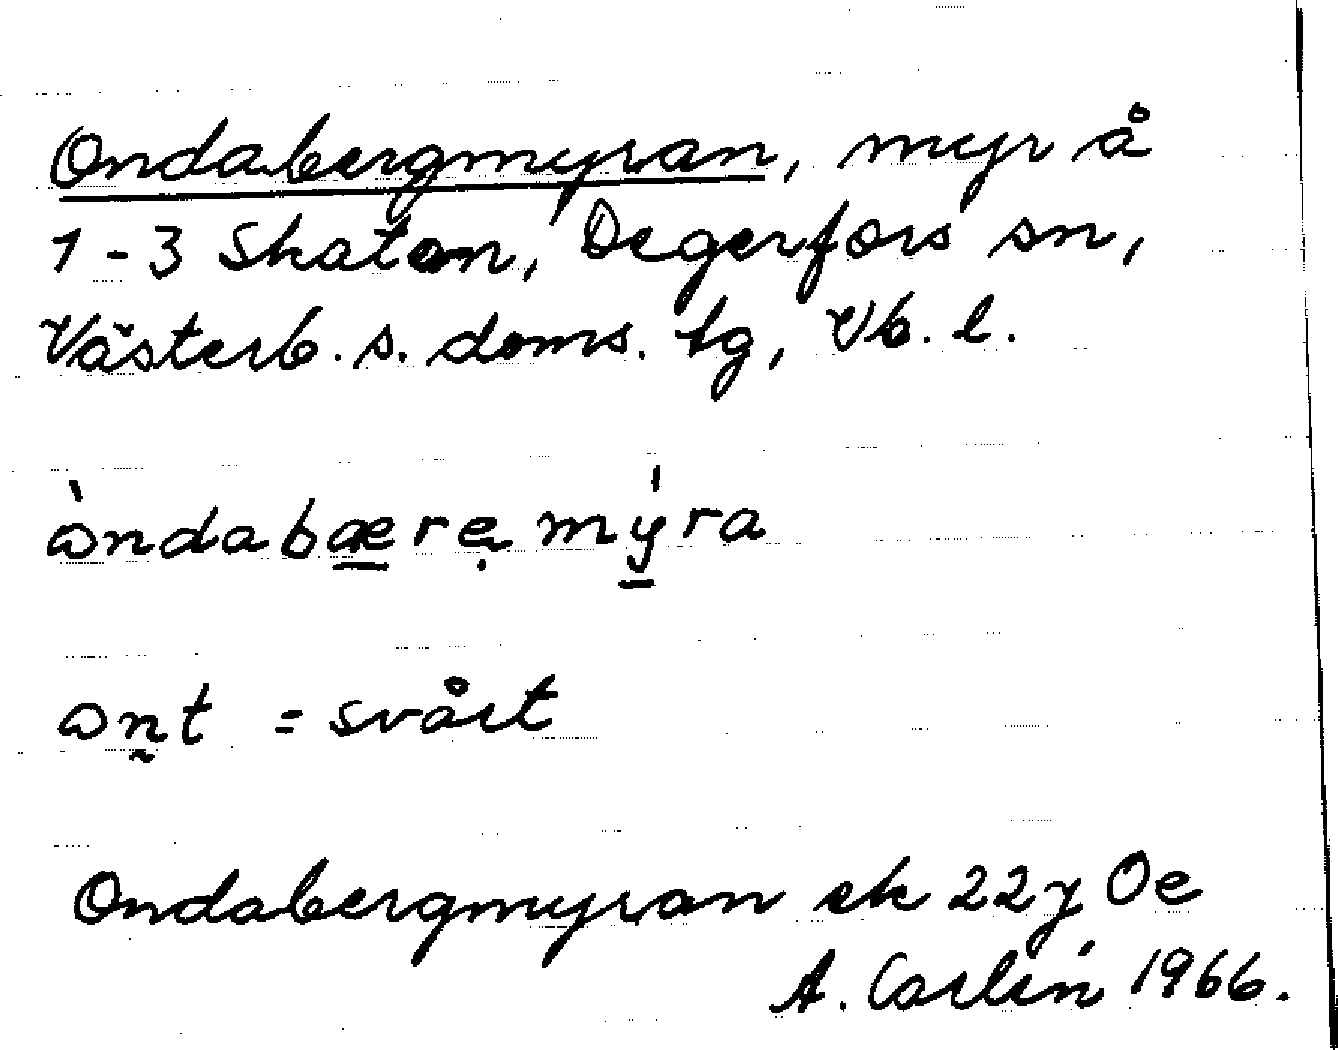 Ondabergmyran, myr å
1-3 Skatan, Degerfors sn,
Västerb. s. doms. tg, Vb. l.
òndabærẹmýra
on̰t = svårt
Ondabergmyran ek 22y Oe
A. Carlin 1966.